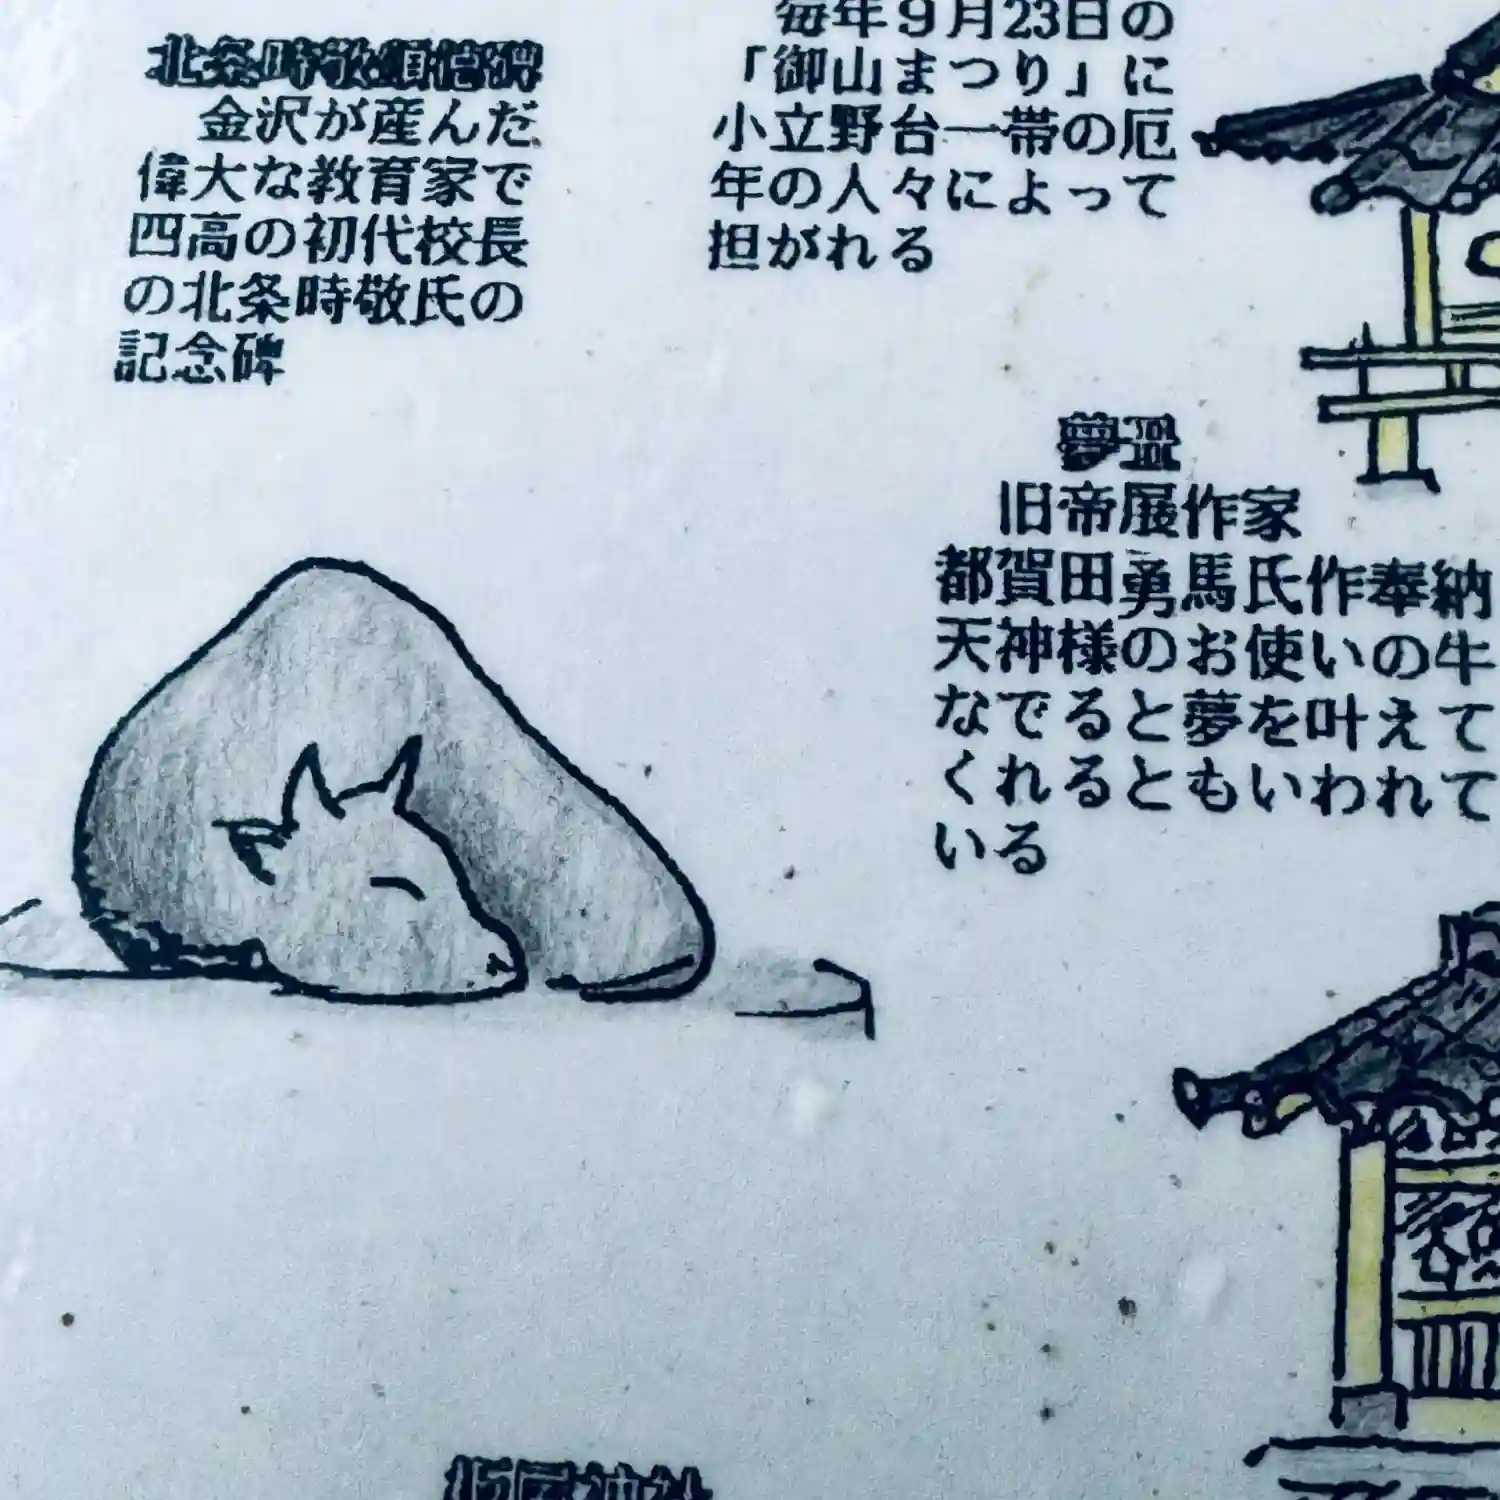 北条時敬頌徳碑
金沢が産んだ
偉大な教育家で
四高の初代校長
の北条時敬氏の
記念碑
毎年9月23日の
「御山まつり」に
小立野台一帯の厄
年の人々によって
担がれる
旧帝展作家
都賀田勇馬氏作奉納
天神様のお使いの牛
なでると夢を叶えて
くれるともいわれて
いる